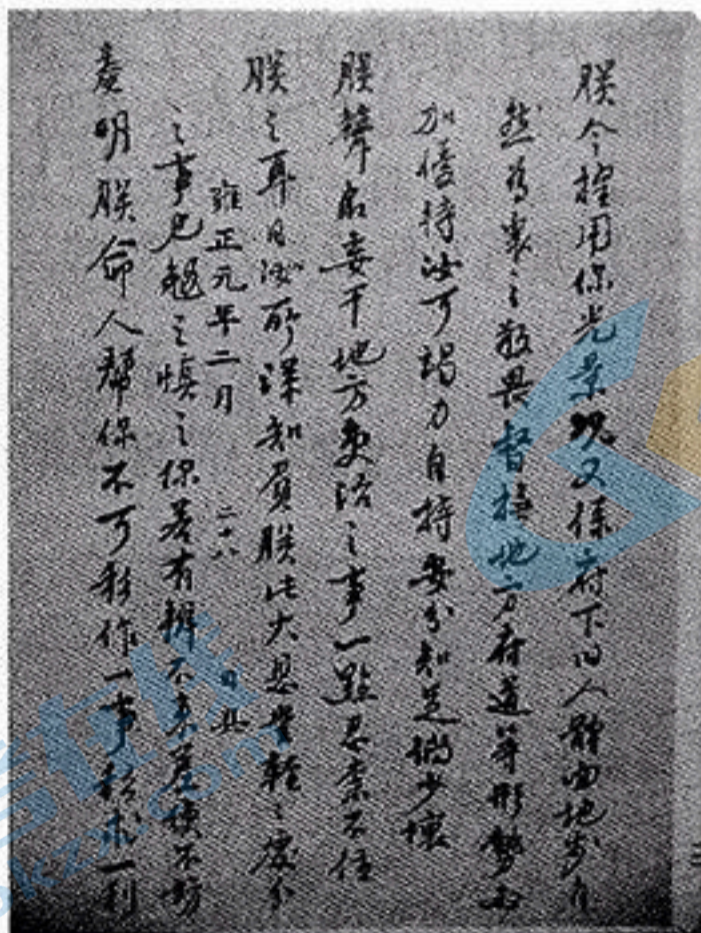 朕今擢用你光景况又係府下的人體面地步自
然為衆之敬畏督撫地方府道等形勢而
加優待汝可竭力自持安分知足倘少壞
朕聲名妄干地方吏治之事一點忍柰不住
朕之耳目汝所深知負朕此大恩豈輕之處分
雍正元年二月二十八日具
之事凡魁之慎之你若有辦不來差使不妨
奏明朕命人幫你不可私作一事私求一利